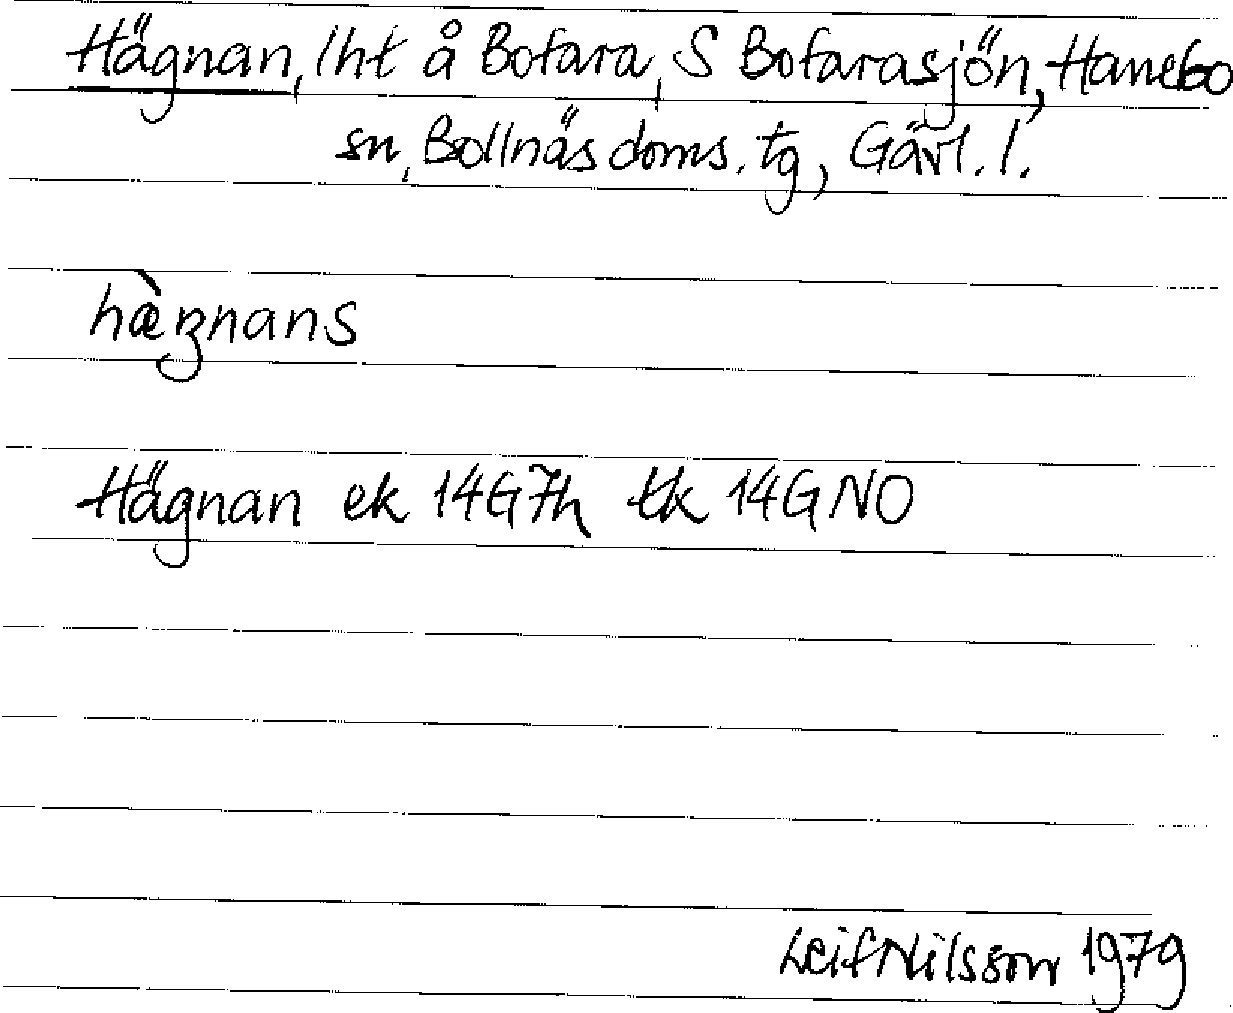 Hägnan, lht å Bofara, S Bofarasjön, Hanebo
sn, Bollnäs doms. tg, Gävl. l.
hæ̀ꞬNans
Hägnan ek 14G7h tk 14GNO
Leif Nilsson 1979